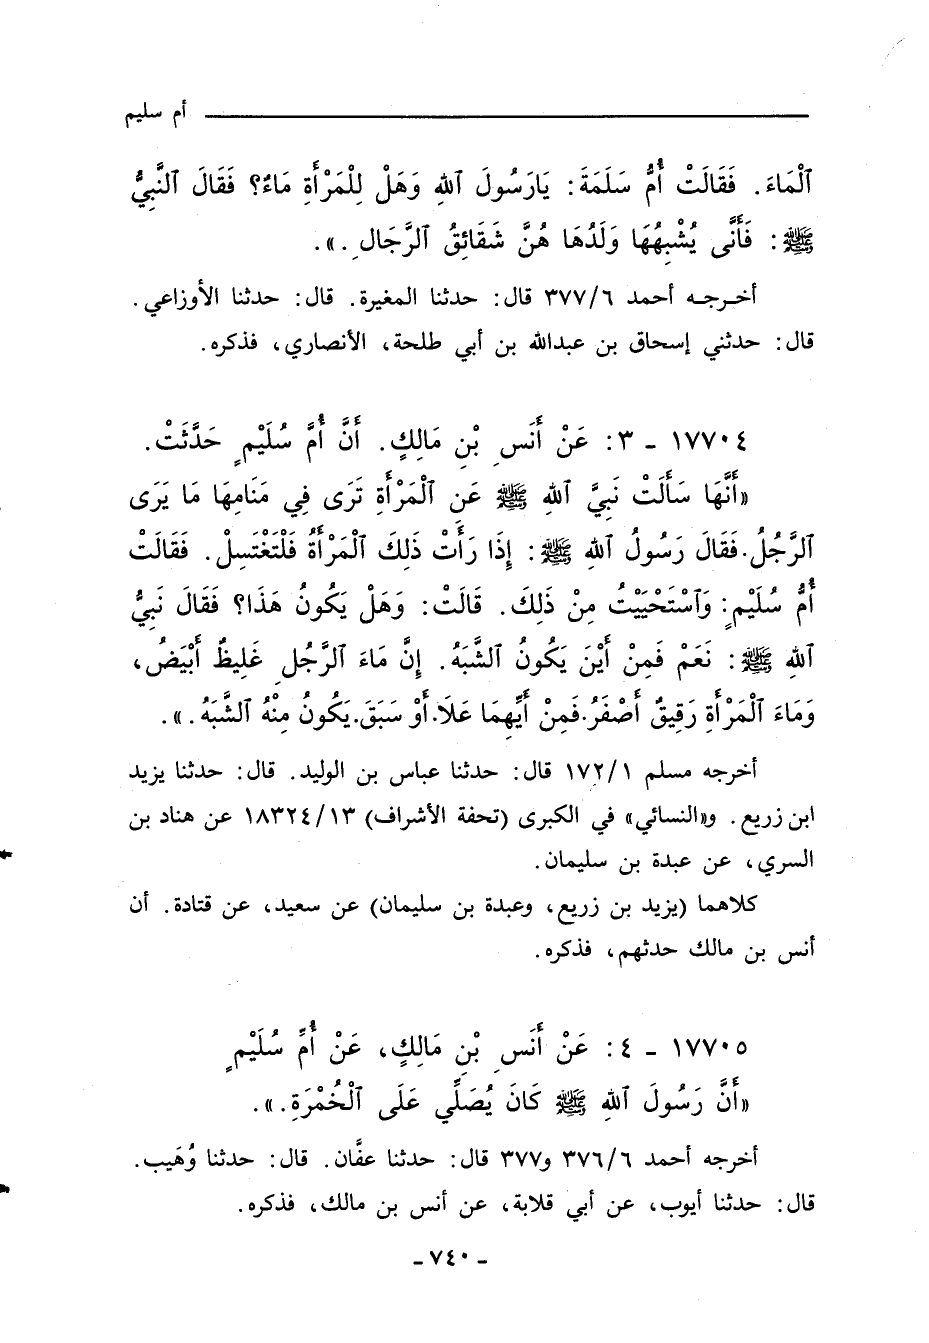 أم سليم
ٱلْمَاءَ. فَقَالَتْ أُمُّ سَلَمَةَ: يَارَسُولَ ٱللهِ وَهَلْ لِلْمَرْأَةِ مَاءٌ؟ فَقَالَ ٱلنَّبِيُّ
ﷺ: فَأَنَّى يُشْبِهُهَا وَلَدُهَا هُنَّ شَقَائِقُ ٱلرَّجَالِ.».
أخرجه أحمد ٣٧٧/٦ قال: حدثنا المغيرة. قال: حدثنا الأوزاعي.
قال: حدثني إسحاق بن عبدالله بن أبي طلحة، الأنصاري، فذكره.
١٧٧٠٤ - ٣: عَنْ أَنَسِ بْنِ مَالِكٍ. أَنَّ أُمَّ سُلَيْمٍ حَدَّثَتْ.
«أَنَّهَا سَأَلَتْ نَبِيَّ ٱللهِ ﷺ عَنِ ٱلْمَرْأَةِ تَرَى فِي مَنَامِهَا مَا يَرَى
ٱلرَّجُلُ. فَقَالَ رَسُولُ ٱللهِ ﷺ: إِذَا رَأَتْ ذَلِكَ ٱلْمَرْأَةُ فَلْتَغْتَسِلْ. فَقَالَتْ
أُمُّ سُلَيْمٍ: وَٱسْتَحْيَيْتُ مِنْ ذَلِكَ. قَالَتْ: وَهَلْ يَكُونُ هَذَا؟ فَقَالَ نَبِيُّ
ٱللهِ ﷺ: نَعَمْ فَمِنْ أَيْنَ يَكُونُ ٱلشَّبَهُ. إِنَّ مَاءَ ٱلرَّجُلِ غَلِيظٌ أَبْيَضُ،
وَمَاءَ ٱلْمَرْأَةِ رَقِيقٌ أَصْفَرُ. فَمِنْ أَيِّهِمَا عَلَا. أَوْ سَبَقَ. يَكُونُ مِنْهُ ٱلشَّبَهُ.».
أخرجه مسلم ١٧٢/١ قال: حدثنا عباس بن الوليد. قال: حدثنا يزيد
ابن زريع. و«النسائي» في الكبرى (تحفة الأشراف) ١٨٣٢٤/١٣ عن هناد بن
السري، عن عبدة بن سليمان.
كلاهما (يزيد بن زريع، وعبدة بن سليمان) عن سعيد، عن قتادة. أن
أنس بن مالك حدثهم، فذكره.
١٧٧٠٥ - ٤: عَنْ أَنَسِ بْنِ مَالِكٍ، عَنْ أُمِّ سُلَيْمٍ
«أَنَّ رَسُولَ ٱللهِ ﷺ كَانَ يُصَلِّي عَلَى ٱلْخُمْرَةِ.».
أخرجه أحمد ٣٧٦/٦ و٣٧٧ قال: حدثنا عفَّان. قال: حدثنا وُهَيب.
قال: حدثنا أيوب، عن أبي قلابة، عن أنس بن مالك، فذكره.
- ٧٤٠ -